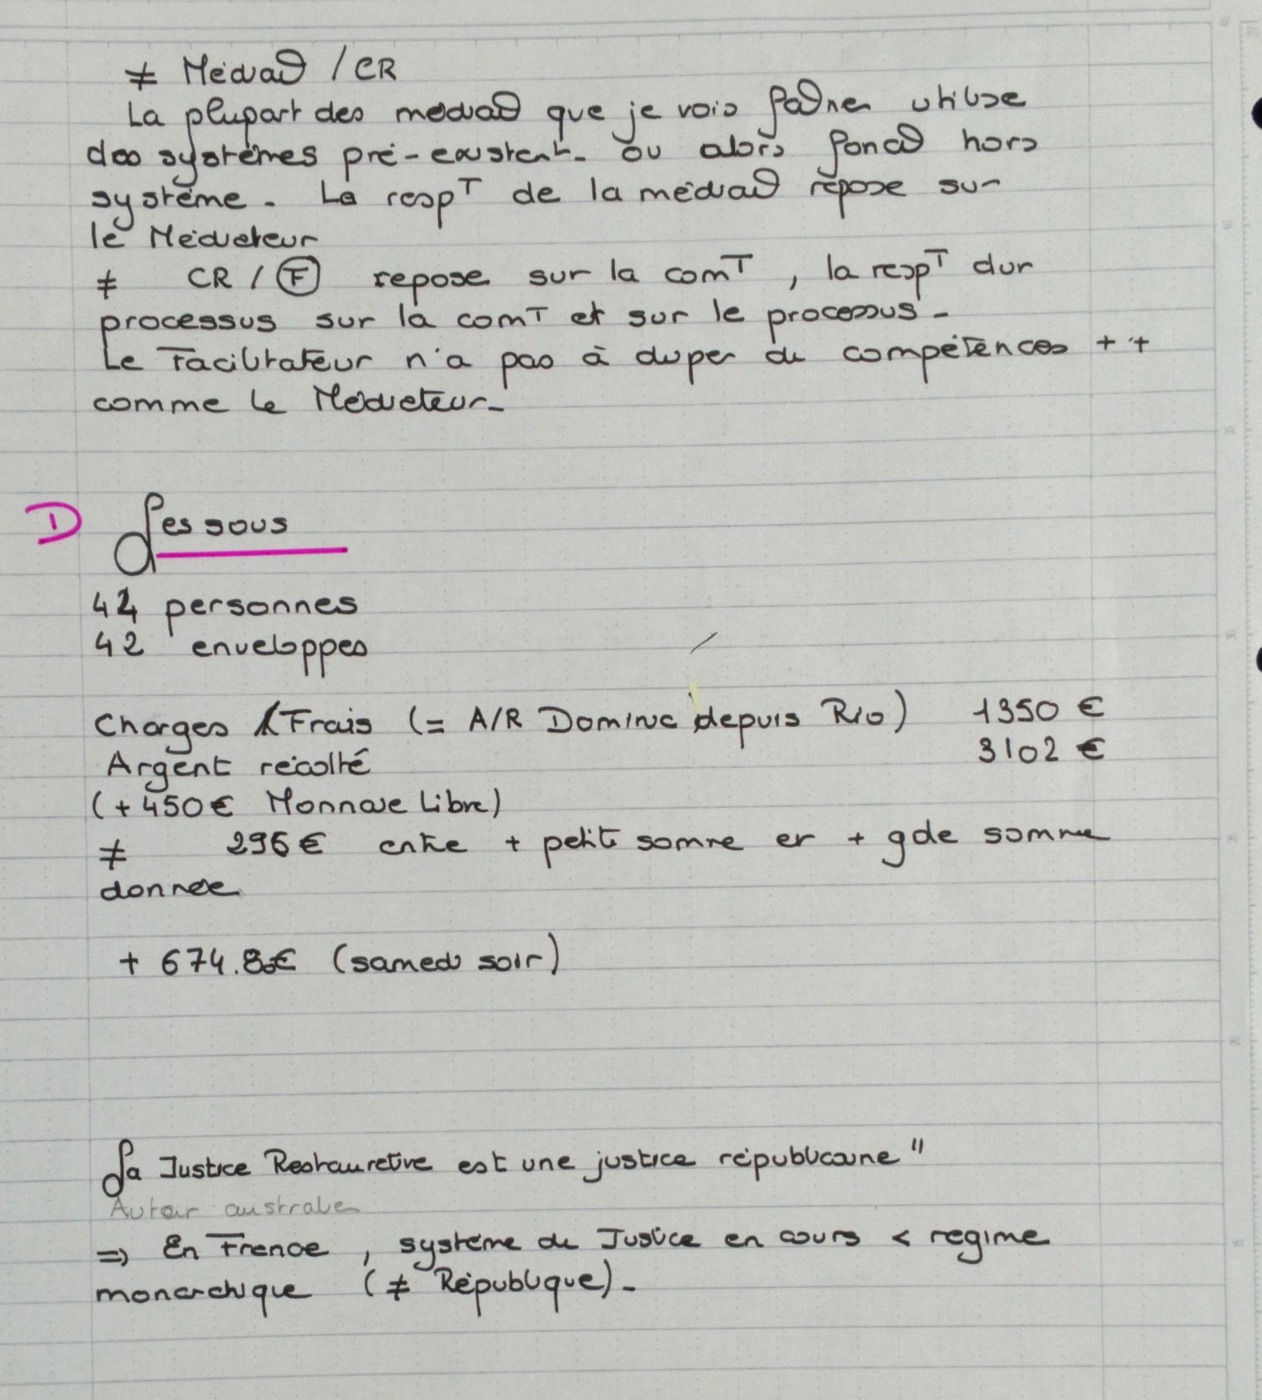 ≠ MédiaƏ / CR
La plupart des médiaƏ que je vois foƏner utilise
des systèmes pré-existent. ou alors foncƏ hors
système. La respT de la médiaƏ repose sur
le Médiateur
≠ CR / Ⓕ repose sur la comT, la respT dur
processus sur la comT et sur le processus.
Le Facilitateur n'a pas à duper de compétences ++
comme le Médiateur.
D Les sous
42 personnes
42 enveloppes
Charges / Frais (= A/R Dominic depuis Rio) 1350 €
Argent récolté 3102 €
(+ 450 € Monnaie Libre)
≠ 296 € entre + petite somme et + gde somme
donnée
+ 674.80€ (samedi soir)
La Justice Restaurative est une justice républicaine"
Auteur australien
=> En France, système de Justice en cours < régime
monarchique (≠ République).